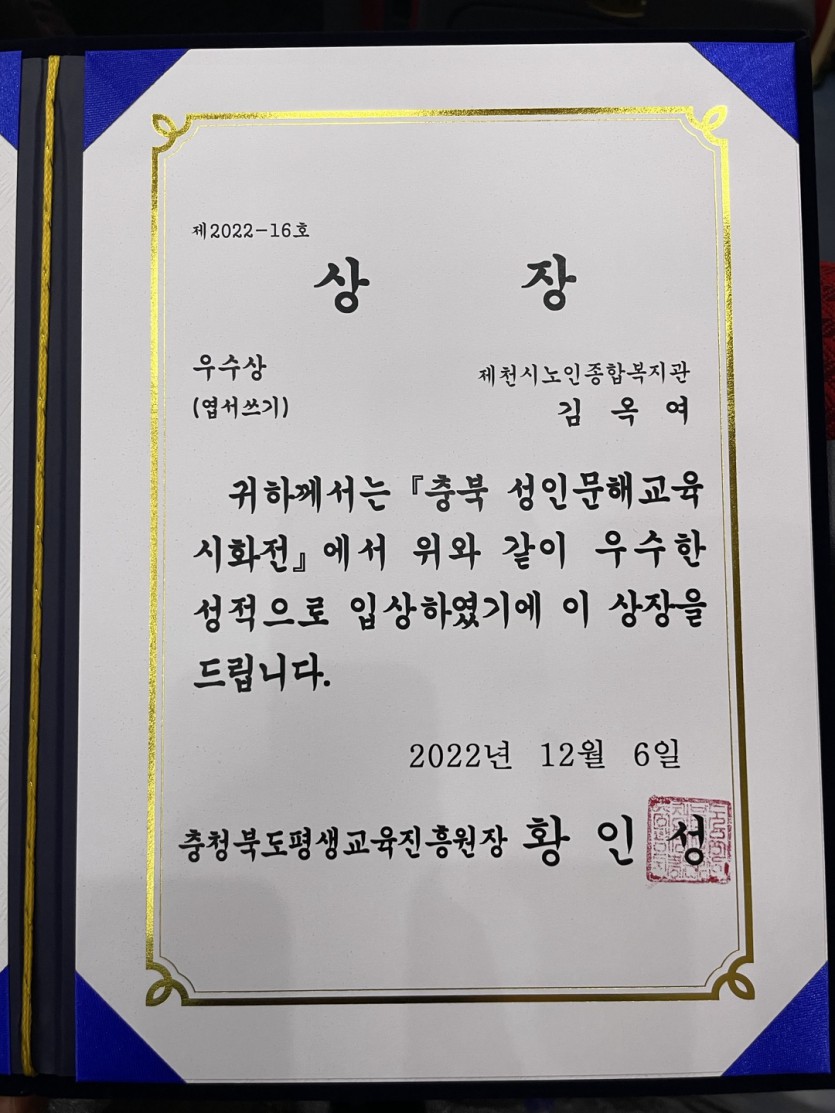 제2022-16호
상 장
우수상
(엽서쓰기)
제천시노인종합복지관
김 옥 여
귀하께서는 『충북 성인문해교육
시화전』에서 위와 같이 우수한
성적으로 입상하였기에 이 상장을
드립니다.
2022년 12월 6일
충청북도평생교육진흥원장 황 인 성